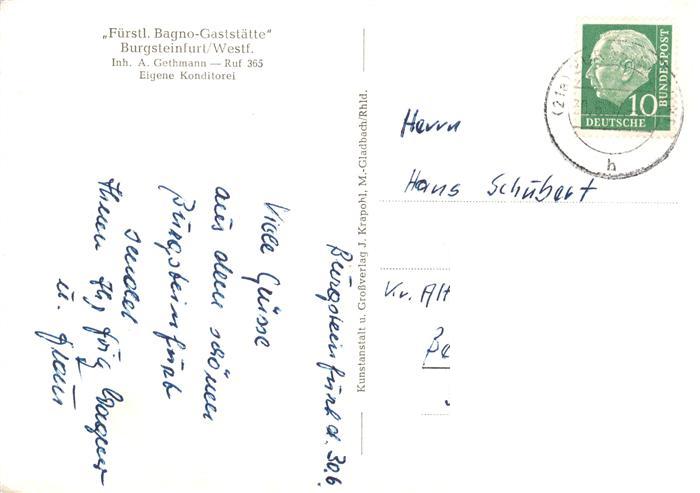 „Fürstl. Bagno-Gaststätte“
Burgsteinfurt/Westf.
Inh. A. Gethmann — Ruf 365
Eigene Konditorei
Burgsteinfurt d. 30.6.
Viele Grüsse
aus dem schönen
Burgsteinfurt
sendet
Ihnen Ihr Wagner
u. Frau
Kunstanstalt u. Großverlag J. Krapohl, M.-Gladbach/Rhld.
10
DEUTSCHE
BUNDESPOST
(21a)
h
Herrn
Hans Schubert